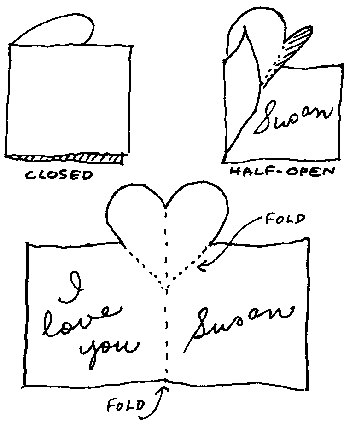 CLOSED
Susan
HALF-OPEN
FOLD
I
love
you
Susan
FOLD